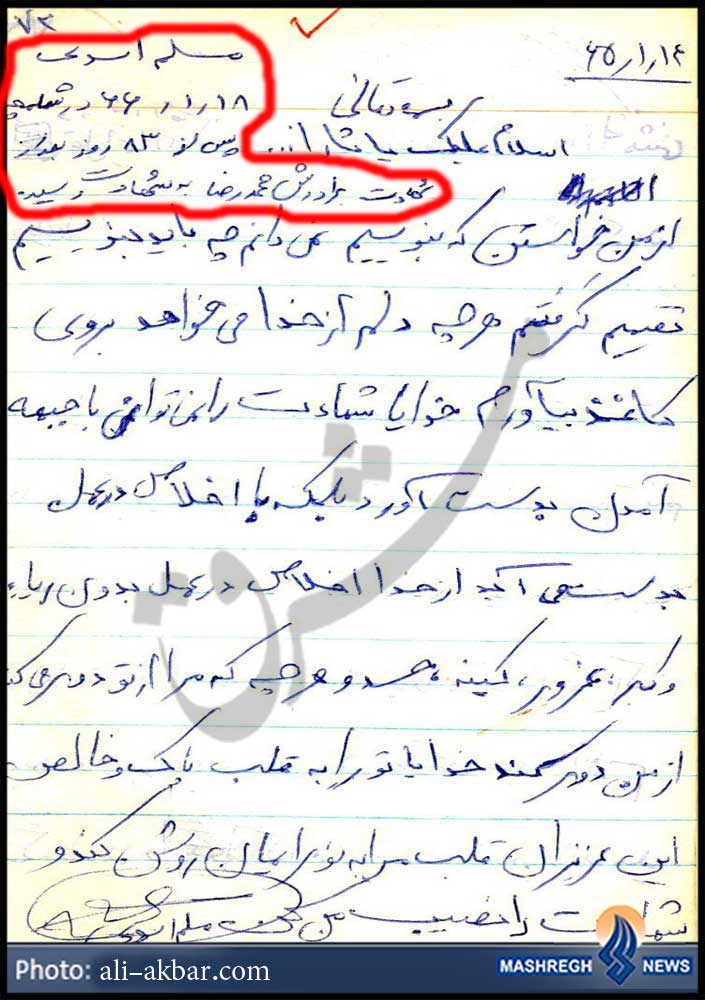 ۷۲
۶۵/۱/۱۶
مسلم اسدی
۶۶/۱/۱۸ در شلمچه
پس از ۸۳ روز بعد از
شهادت برادرش محمدرضا به شهادت رسید
بسمه تعالی
اسلام علیک یا ثارا...
از من خواستن که بنویسیم نمی دانم چه باید بنویسیم
تصیم گرفتم هر چه دلم از خدا می خواهد بروی
کاغذ بیآورم خدایا شهادت را نمی توان با جبهه
آمدن بدست آورد بلکه با اخلاص در عمل
بدست می آید از خدا اخلاص در عمل بدون ریاء
و کبر، غرور، کینه، حسد و هر چه که مرا از تو دور می کند
از من دور کند خدایا تو را به قلب پاک و خالص
این عزیزان قلب مرا به نور ایمان روشن کن و
شهادت را نصیب من کن مسلم اسدی
مشرق
Photo: ali-akbar.com
MASHREGH NEWS